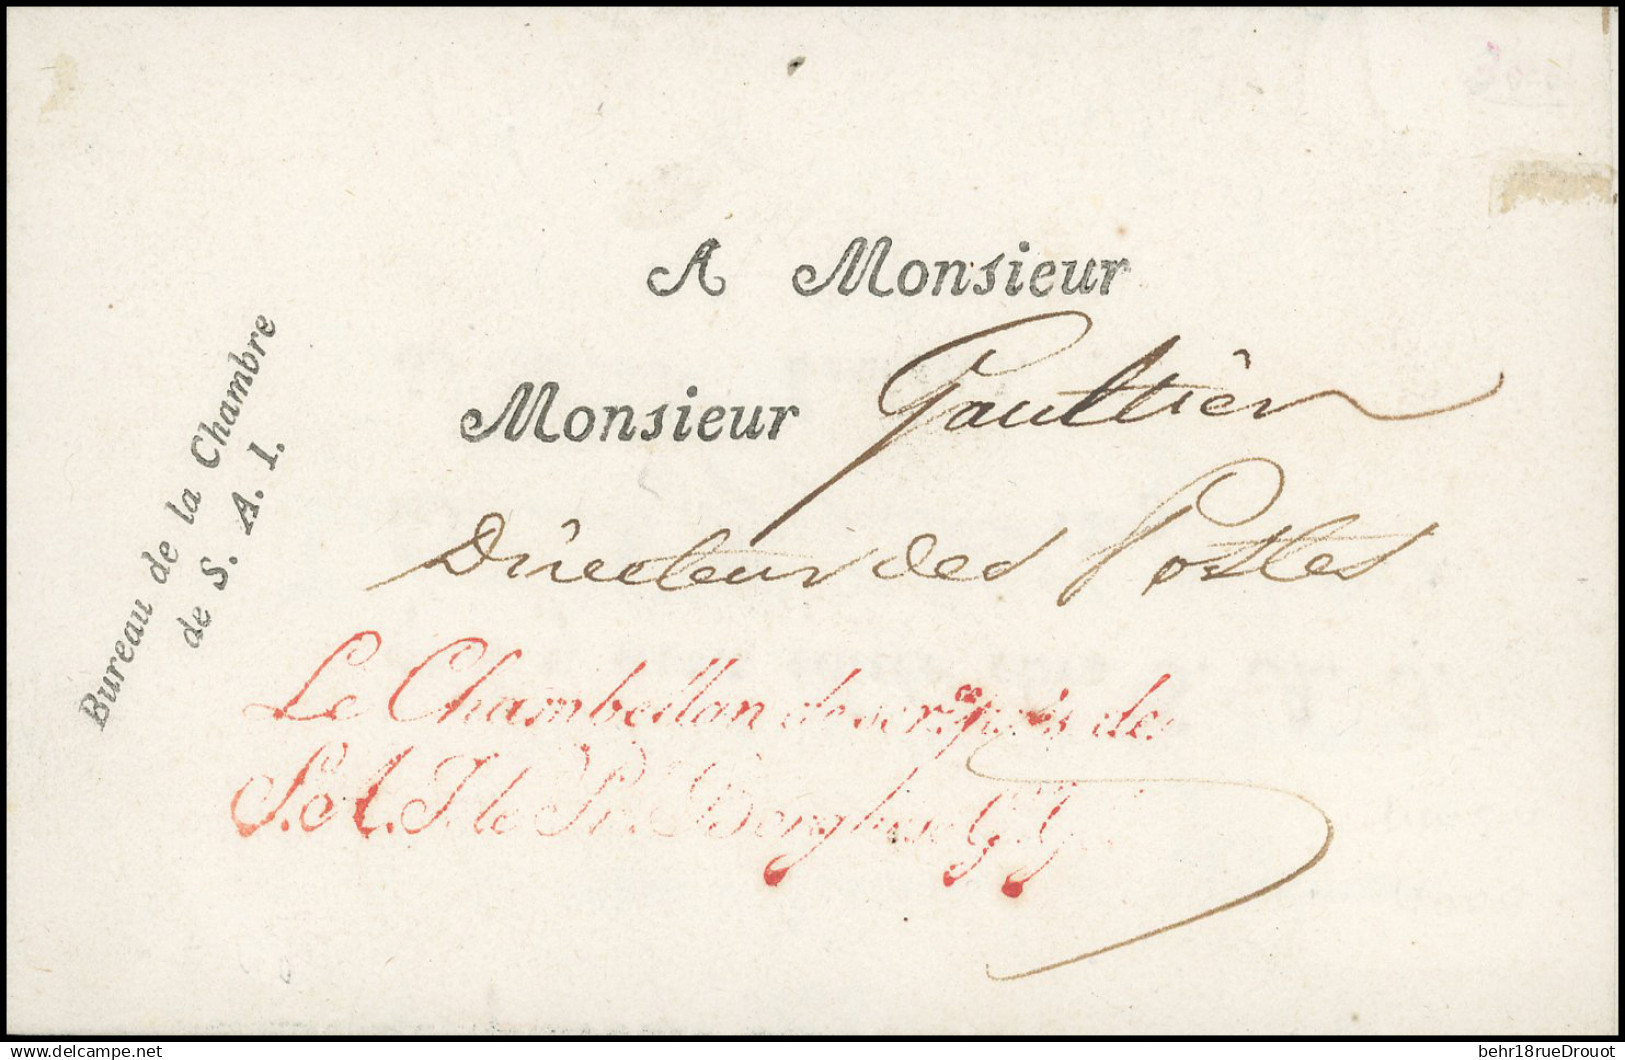 A Monsieur
Monsieur Gaultier
Directeur des Postes
Bureau de la Chambre
de S. A. I.
Le Chambellan de de
S. A. I. le Pce. Borghese G. G.
behr18rueDrouot